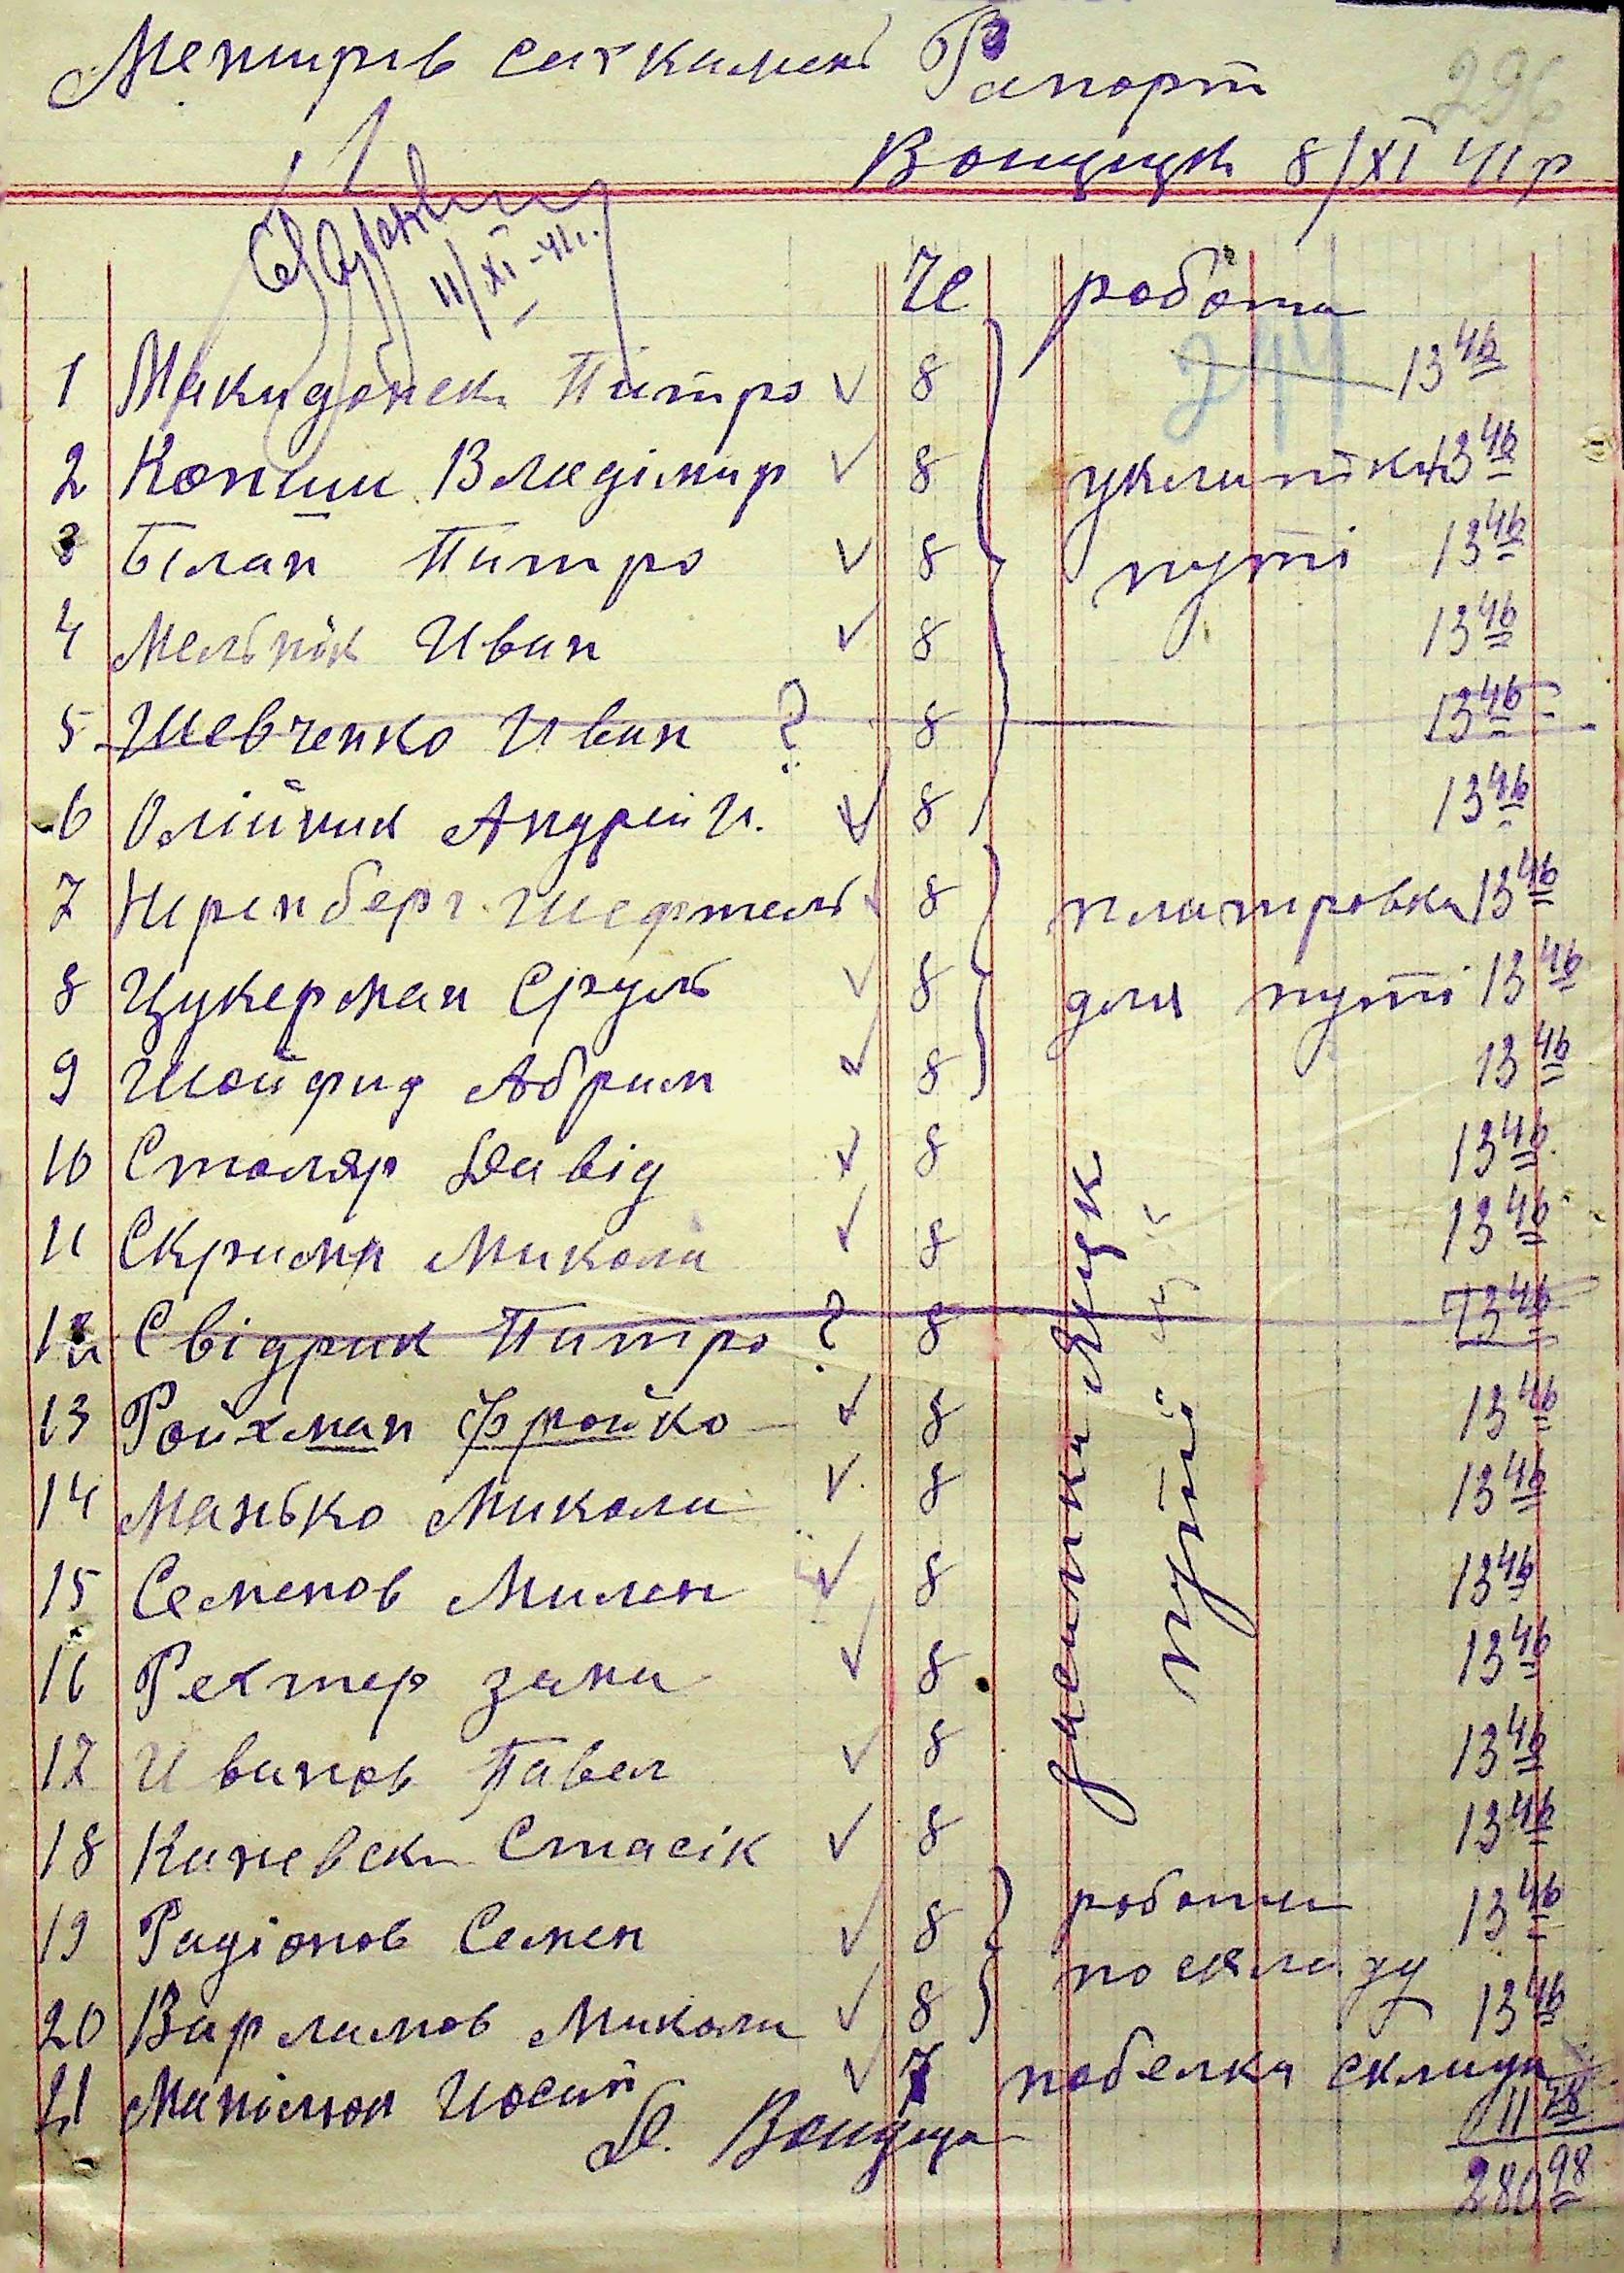 Рапорт
8/XI 41р
296
11/XI-41г.
Ч робота
244
1 Питро 8 13 46
2 Владімир 8 укладка 13 46
3 Білан Питро 8 путі 13 46
4 Мельнік Иван 8 13 46
5 Шевченко Иван ? 8 13 46
6 Олійник Андрей И. 8 13 46
7 Ніренберг Шефтель 8 планировка 13 46
8 Цукерман Сруль 8 для путі 13 46
9 Шойфид Абрам 8 13 46
10 Столяр Давід 8 13 46
11 Микола 8 13 46
12 Свідрик Питро ? 8 13 46
13 Ройхман Фройко 8 13 46
14 Манько Микола 8 13 46
15 Семенов Милен 8 13 46
16 Рехтер 8 13 46
17 Иванов Павел 8 13 46
18 Каневски Стасік 8 13 46
путі
19 Радіонов Семен 8 робота 13 46
20 Варламов Микола 8 по складу 13 46
21 7 побелка склада 11 78
280 98